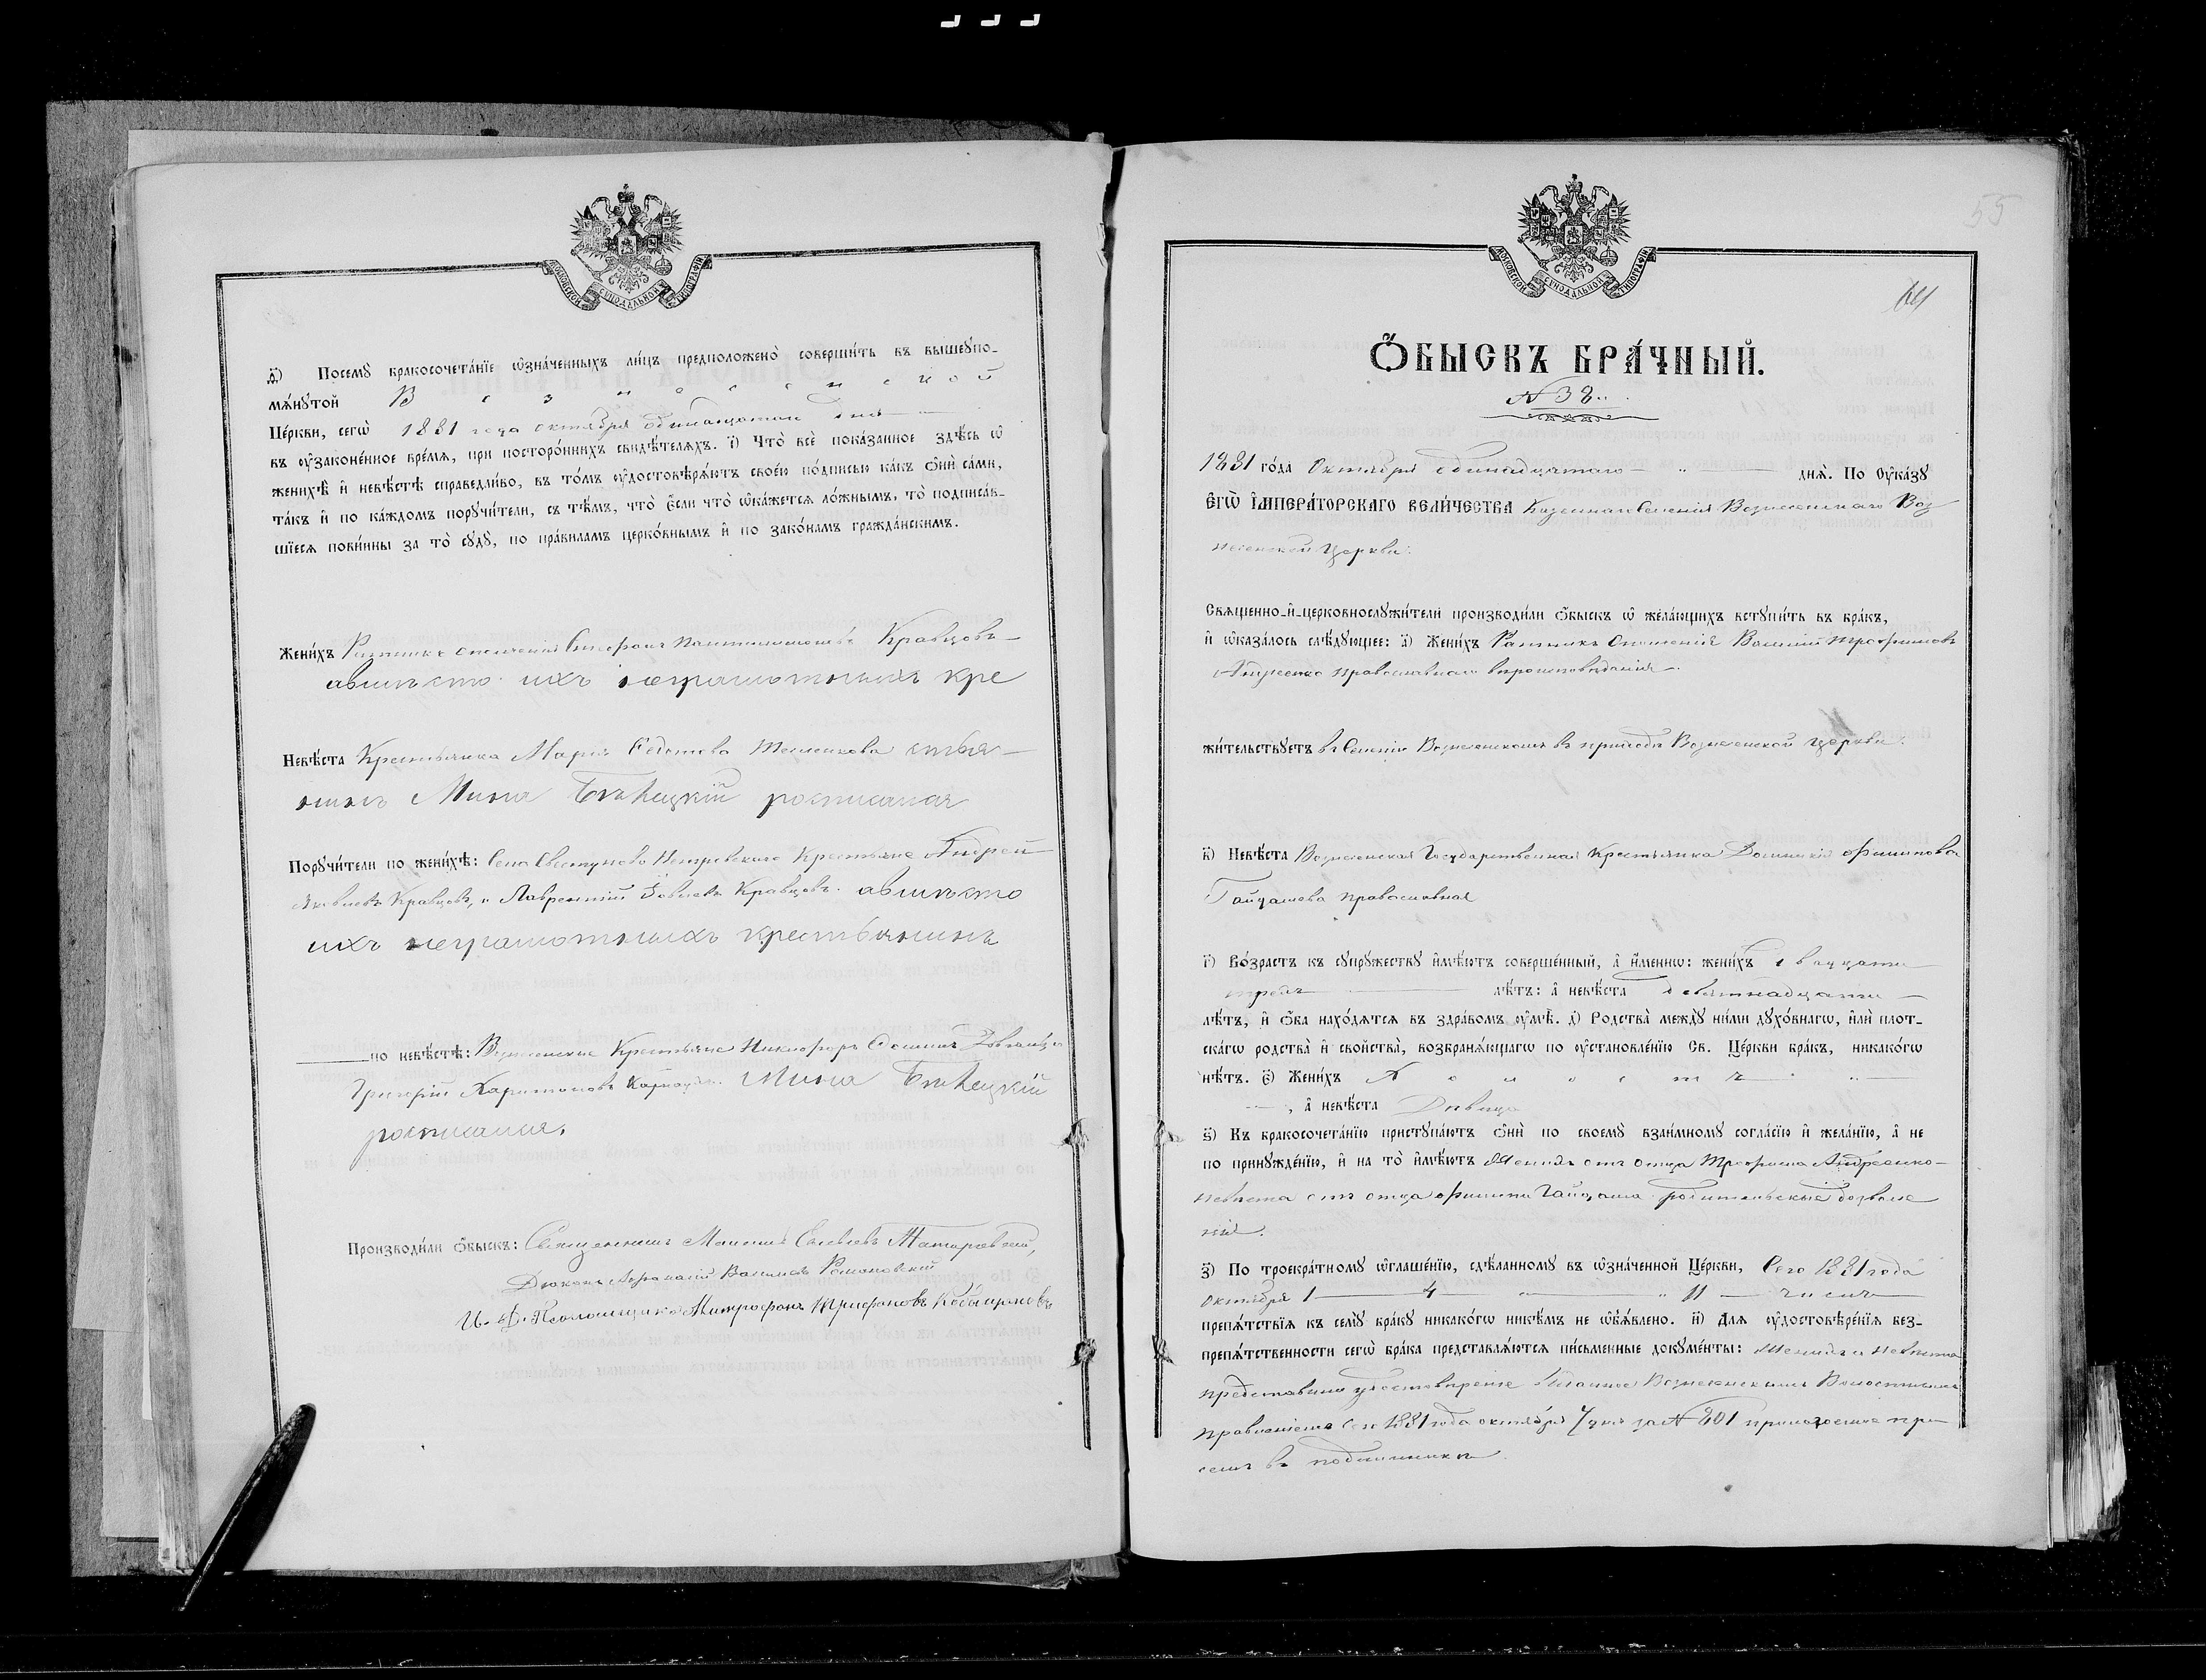 МОСКОВСКОЙ СѴНОДАЛЬНОЙ ТИПОГРАФІИ
ѳ҃) Посемꙋ бракосочета́нїе ѡ҆зна́ченныхъ ли́цъ предположено̀ соверши́ть въ вышеꙋпо-
мѧ́нꙋтой Вознесенской
Це́ркви, сегѡ̀ 1881 года октября одинадцатаго дня
въ ᲂу҆законе́нное вре́мѧ, при посторо́ннихъ свидѣ́телѧхъ. і҃) Что̀ всѐ пока́занное здѣ́сь ѡ҆
женихѣ̀ и҆ невѣ́стѣ справедли́во, въ то́мъ ᲂу҆достовѣрѧ́ютъ свое́ю по́дписью ка́къ ѻ҆нѝ са́ми,
та́къ и҆ по ка́ждомъ порꙋчи́тели, съ тѣ́мъ, что̀ є҆́сли что̀ ѡ҆ка́жетсѧ ло́жнымъ, то̀ подписа́в-
шїесѧ пови́нны за то̀ сꙋдꙋ̀, по пра́виламъ церко́внымъ и҆ по зако́намъ гражда́нскимъ.
Жени́хъ Ратникъ ополченія Стефанъ Кравцовъ
авмѣсто ихъ неграмотныхъ кре
Невѣ́ста Крестьянка Марія Федотова стья-
нинъ Мина росписался
Порꙋчи́тели по женихѣ̀: Села Петровскаго Крестьяне Андрей
Яковлевъ Кравцовъ, и Лаврентій Кравцовъ авмѣсто
ихъ неграмотныхъ крестьянинъ
по невѣ́стѣ: Вознесенские Крестьяне Никифоръ
Григорій Харитоновъ Мина
росписался.
Производи́ли ѻ҆́быскъ: Священникъ
Дюконъ Афанасій Васильевъ Романовскій
И. Д. Псаломщика Митрофанъ Трифоновъ
55
МОСКОВСКОЙ СѴНОДАЛЬНОЙ ТИПОГРАФІИ
Ѻ҆́БЫСКЪ БРА́ЧНЫЙ.
№ 38.
1881 го́да Октября одинадцатаго дня̀. По ᲂу҆ка́зꙋ
Е҆гѡ̀ И҆мпера́торскаго вели́чества Казеннаго Селенія Вознесенскаго Воз
несенской Церкви.
Свѧще́нно-и҆-церковнослꙋжи́тели производи́ли ѻ҆́быскъ ѡ҆ жела́ющихъ встꙋпи́ть въ бра́къ,
и҆ ѡ҆каза́лось слѣ́дꙋющее: а҃) Жени́хъ Ратникъ Ополченія Василій Трофимовъ
Андреенко православнаго вѣроисповѣданія.
жи́тельствꙋетъ въ Селеніи Вознесенскомъ въ приходѣ Вознесенской Церкви.
в҃) Невѣ́ста Вознесенская Государственная Крестьянка Домникія Филипова
Гайдашева православная
г҃) Во́зрастъ къ сꙋпрꙋ́жествꙋ и҆мѣ́ютъ соверше́нный, а҆ и҆́менно: жени́хъ двадцати
трехъ лѣ́тъ: а҆ невѣ́ста девятнадцати
лѣ́тъ, и҆ ѻ҆́ба нахо́дѧтсѧ въ здра́вомъ ᲂу҆мѣ̀. д҃) Родства̀ междꙋ̀ ни́ми дꙋхо́внагѡ, и҆лѝ плот-
ска́гѡ родства̀ и҆ свойства̀, возбранѧ́ющагѡ по ᲂу҆становле́нїю Св. Це́ркви бра́къ, никако́гѡ
нѣ́тъ. є҃) Жени́хъ Холостъ
, а҆ невѣ́ста Дѣвица
ѕ҃) Къ бракосочета́нїю пристꙋпа́ютъ ѻ҆нѝ по своемꙋ̀ взаи́мномꙋ согла́сїю и҆ жела́нїю, а҆ не
по принꙋжде́нїю, и҆ на то̀ и҆мѣ́ютъ Женихъ отъ отца Трофима Андреенко
невѣста отъ отца Филипа Гайдаша родительские дозволе
ніе.
з҃) По троекра́тномꙋ ѡ҆глаше́нїю, сдѣ́ланномꙋ въ ѡ҆зна́ченной Це́ркви, Сего 1881 года
Октября 1 4 11 числъ
препѧ́тствїѧ къ семꙋ̀ бра́кꙋ никако́гѡ никѣ́мъ не ѡ҆б̾ѧ́влено. и҃) Длѧ ᲂу҆достовѣре́нїѧ без-
препѧ́тственности сегѡ̀ бра́ка представлѧ́ютсѧ пи́сьменные докꙋме́нты: Женихъ и невѣста
представили удостовѣреніе выданное Вознесенскимъ Волостнымъ
правленіемъ сего 1881 года октября 7 дня за № 801 приложенное при
семъ въ подлинникѣ.